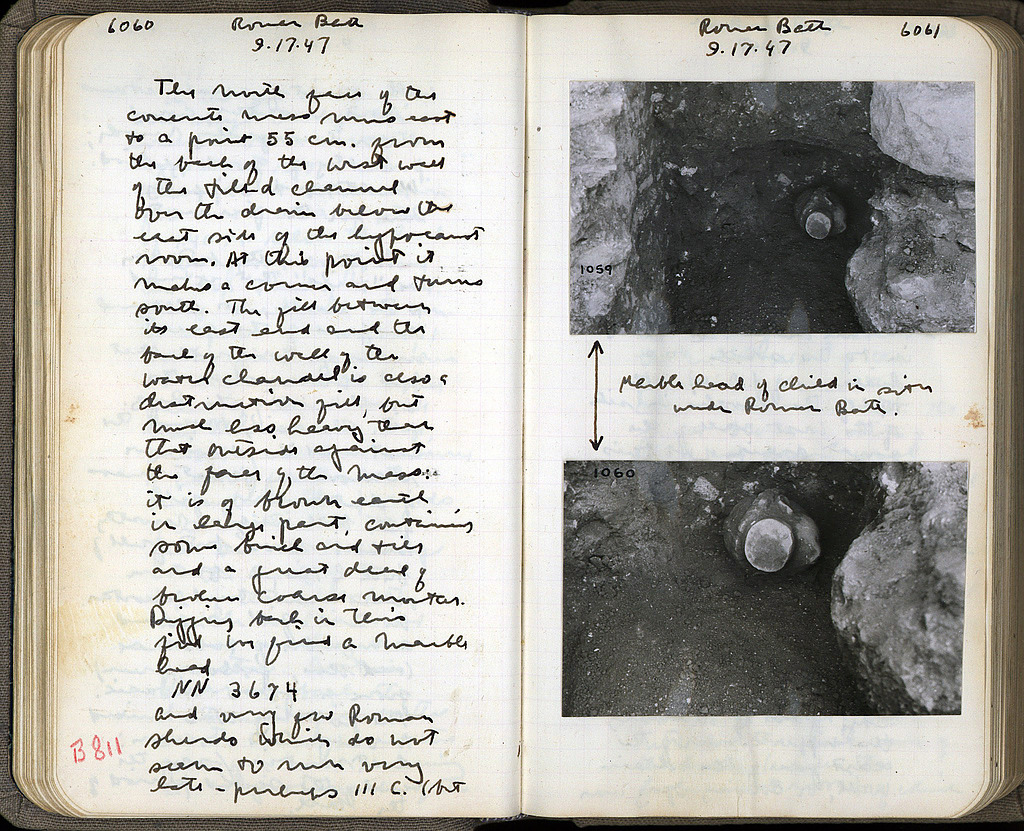 6060 Roman Bath
9.17.47
The north face of the
concrete mass runs east
to a point 55 cm. from
the back of the west wall
of the tiled channel
over the drain below the
east side of the hypocaust
room. At this point it
makes a corner and turns
south. The fill between
its east end and the
back of the wall of the
water channel is also a
destruction fill, but
much less heavy than
that outside against
the face of the mass:
it is of brown earth
in large part, containing
some brick and tile
and a great deal of
broken coarse mortar.
Digging back in this
fill we find a marble
head
NN 3674
and very few Roman
B 811
sherds which do not
seem to run very
late - perhaps III C. (but
Roman Bath 6061
9.17.47
1059
Marble head of child in situ
under Roman Bath.
1060